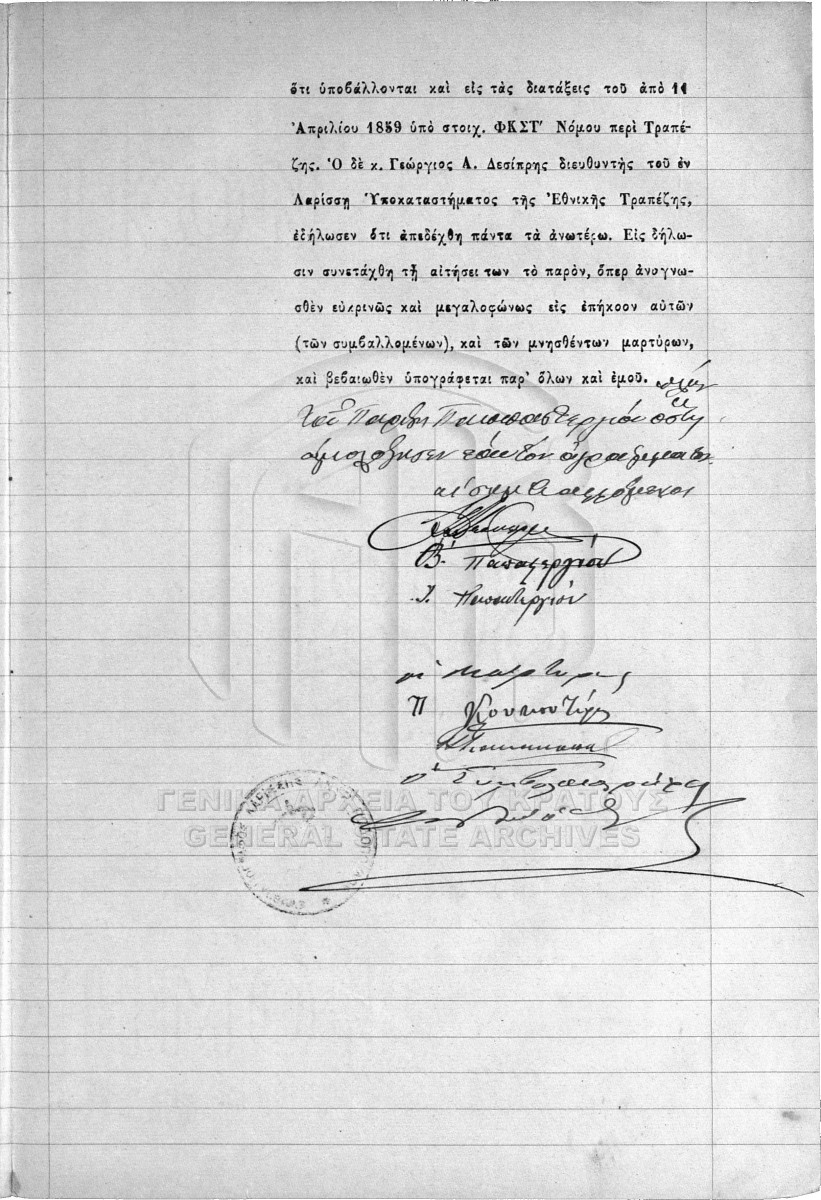 ὅτι ὑποβάλλονται καὶ εἰς τὰς διατάξεις τοῦ ἀπὸ 11
Ἀπριλίου 1859 ὑπὸ στοιχ. ΦΚΣΤʹ Νόμου περὶ Τραπέ-
ζης. Ὁ δὲ κ. Γεώργιος Α. Δεσίπρης διευθυντὴς τοῦ ἐν
Λαρίσσῃ Ὑποκαταστήματος τῆς Ἐθνικῆς Τραπέζης,
ἐδήλωσεν ὅτι ἀπεδέχθη πάντα τὰ ἀνωτέρω. Εἰς δήλω-
σιν συνετάχθη τῇ αἰτήσει των τὸ παρὸν, ὅπερ ἀνογνω-
σθὲν εὐκρινῶς καὶ μεγαλοφώνως εἰς ἐπήκοον αὐτῶν
(τῶν συμβαλλομένων), καὶ τῶν μνησθέντων μαρτύρων,
καὶ βεβαιωθὲν ὑπογράφεται παρ' ὅλων καὶ ἐμοῦ. πλὴν
τοῦ Παπαστεργίου ὅστις
ὡμολόγησεν ἑαυτὸν ἀγράμματον
οἱ συμβαλλόμενοι
Β. Παπαστεργίου
Ι. Παπαστεργίου
οἱ μάρτυρες
Π
ὁ Συμβολαιογράφος
ΓΕΝΙΚΑ ΑΡΧΕΙΑ ΤΟΥ ΚΡΑΤΟΥΣ
GENERAL STATE ARCHIVES